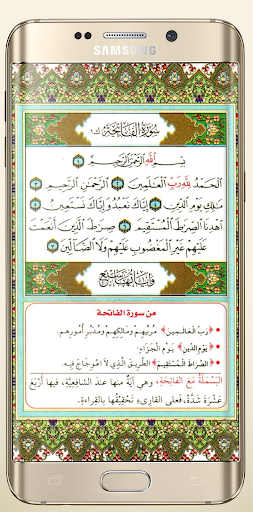 SAMSUNG
سُورَةُ الفَاتِحَةِ
بِسْمِ اللَّهِ الرَّحْمَٰنِ الرَّحِيمِ ①
الْحَمْدُ لِلَّهِ رَبِّ الْعَالَمِينَ ② الرَّحْمَٰنِ الرَّحِيمِ ③
مَالِكِ يَوْمِ الدِّينِ ④ إِيَّاكَ نَعْبُدُ وَإِيَّاكَ نَسْتَعِينُ ⑤
اهْدِنَا الصِّرَاطَ الْمُسْتَقِيمَ ⑥ صِرَاطَ الَّذِينَ أَنْعَمْتَ
عَلَيْهِمْ غَيْرِ الْمَغْضُوبِ عَلَيْهِمْ وَلَا الضَّالِّينَ ⑦
وَآيَاتُهَا سَبْعٌ
من سورة الفاتحة
• ﴿رَبِّ العَالَمِينَ﴾ مُرَبِّيهِمْ وَمَالِكِهِمْ وَمُدَبِّرِ أُمُورِهِم.
• ﴿يَوْمِ الدِّينِ﴾ يَوْمِ الجَزَاءِ.
• ﴿الصِّرَاطَ المُسْتَقِيمَ﴾ الطَّرِيقَ الَّذِي لَا اعْوِجَاجَ فِيهِ.
البَسْمَلَةُ مَعَ الفَاتِحَةِ، وهي آية منها عند الشافعيّة، فيها أَرْبَعَ
عَشْرَةَ شَدَّةً، فَعَلَى القَارِىءِ تَحْقِيقُهَا بِالقِرَاءَةِ.